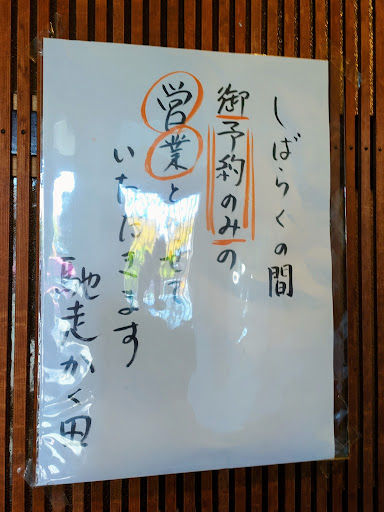 しばらくの間
御予約のみの
営業とさせて
いただきます
馳走かく田